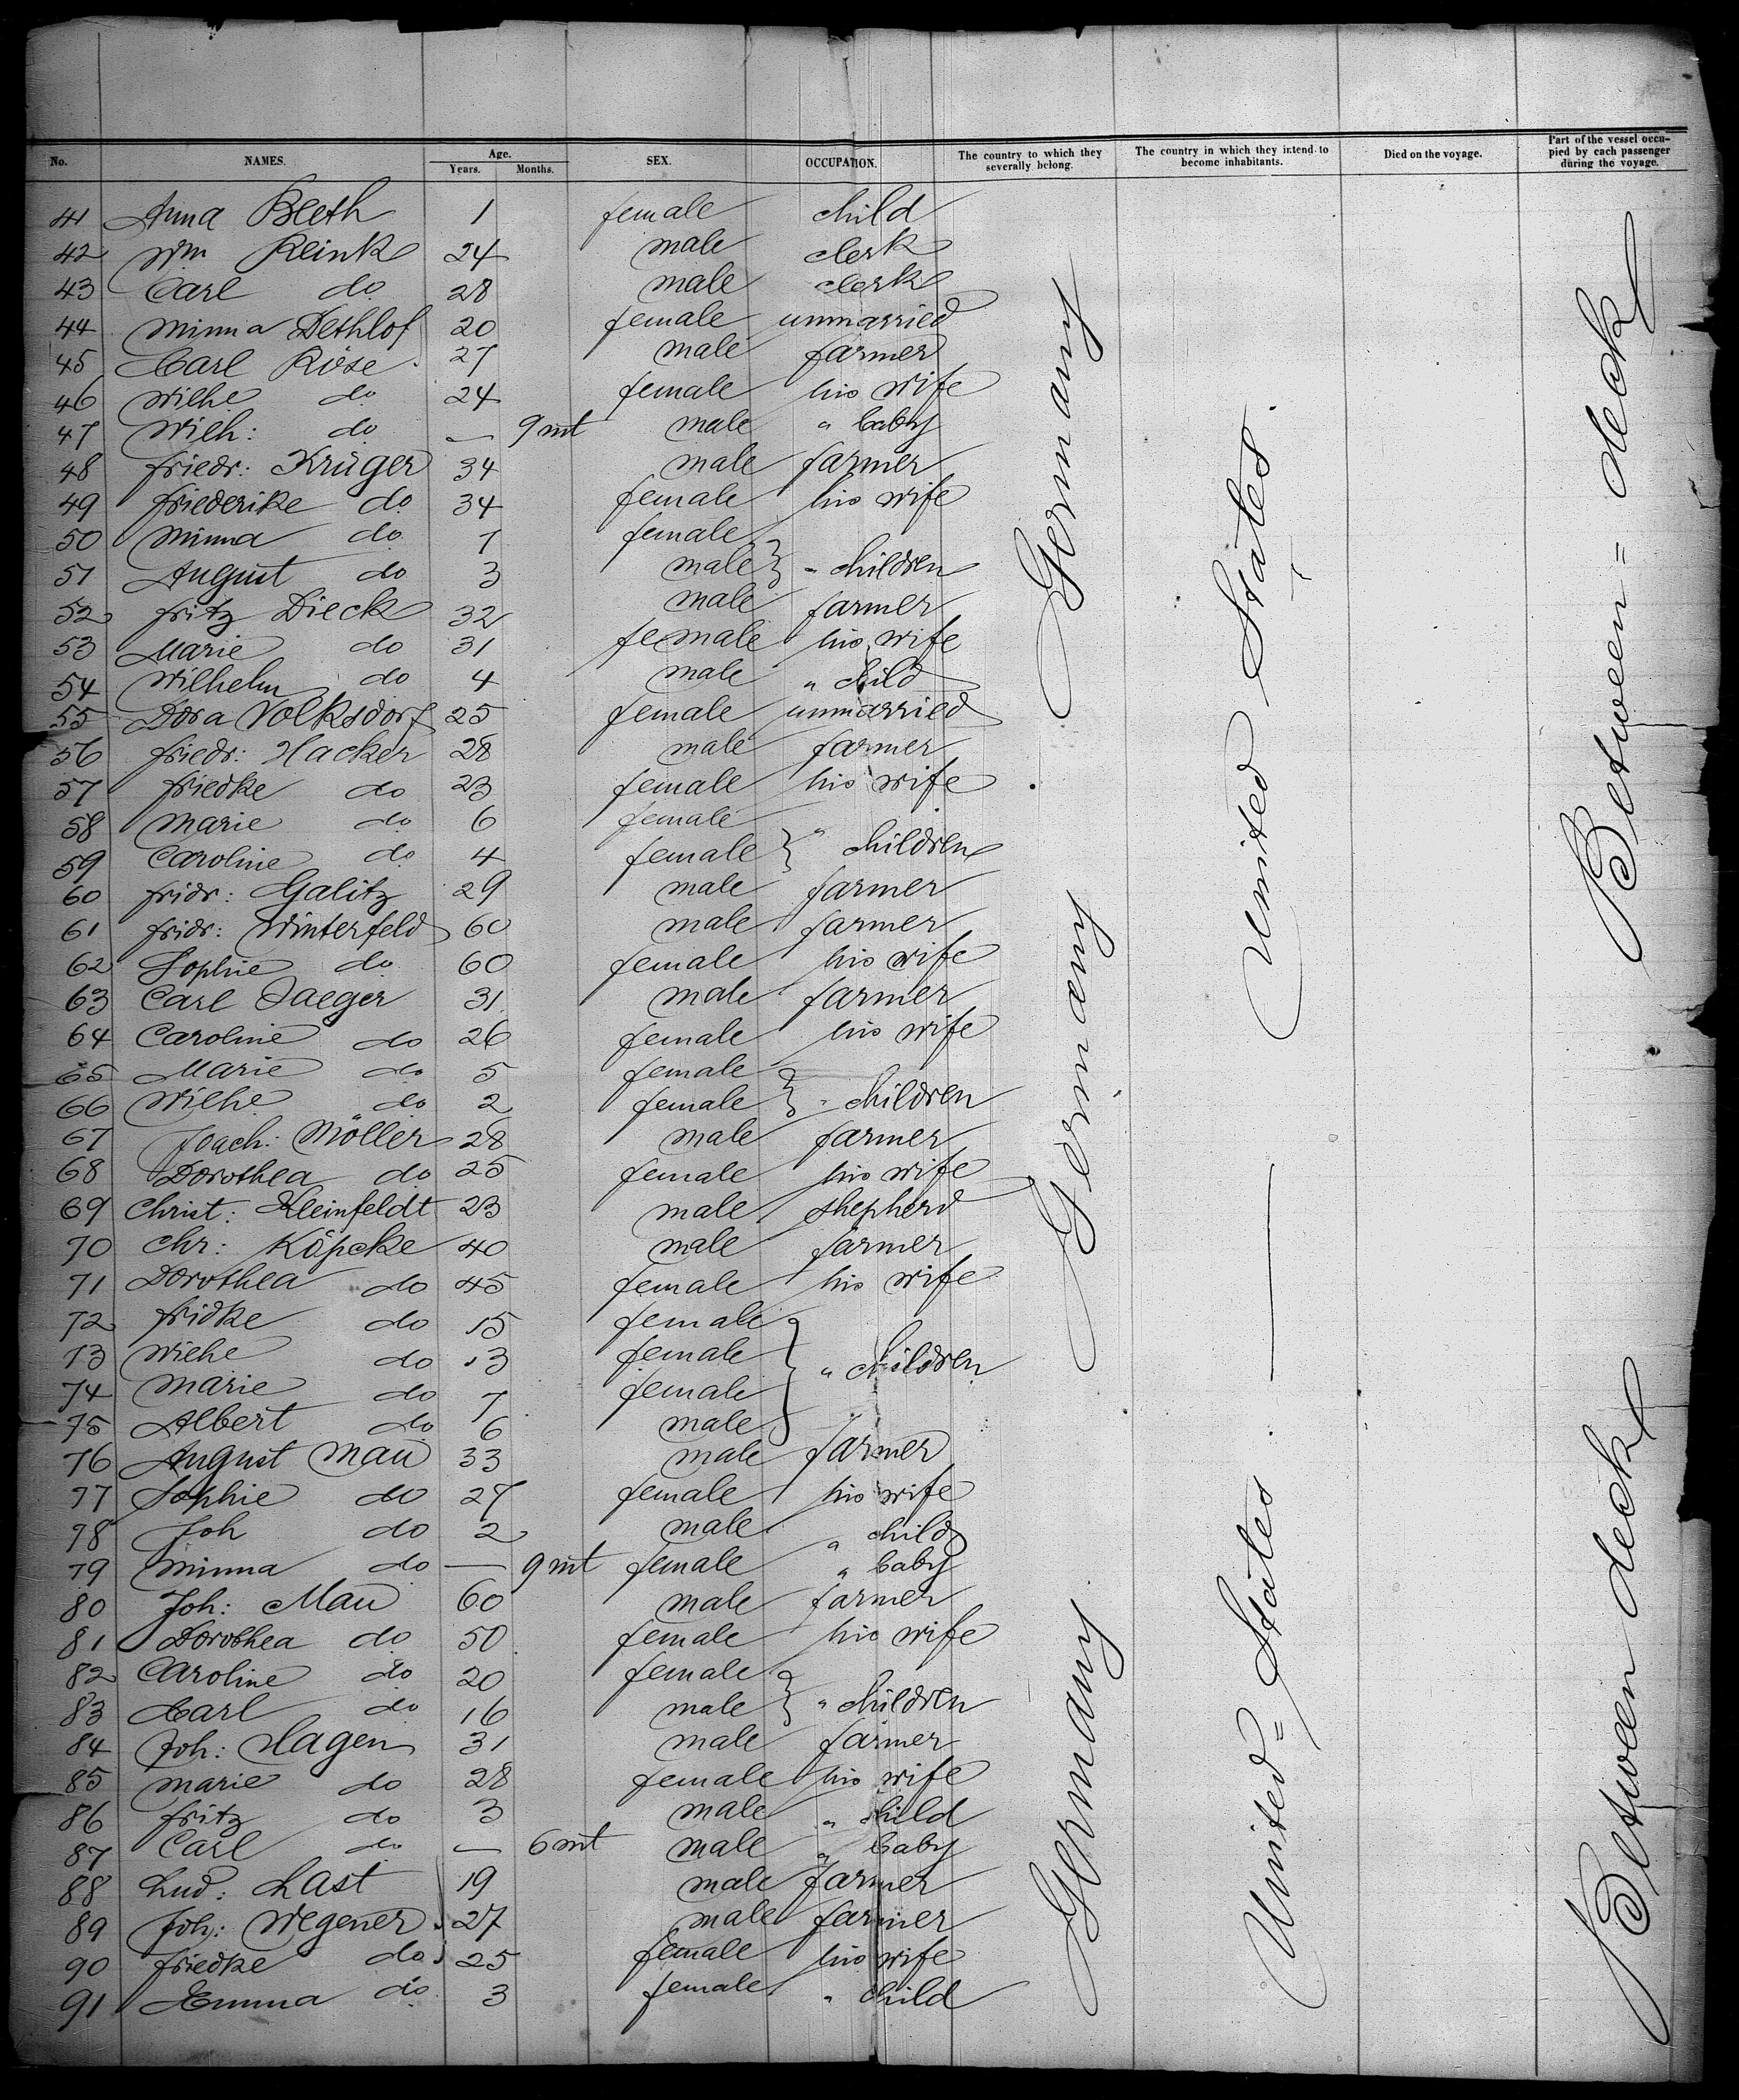 No. NAMES. Age. Years. Months. SEX. OCCUPATION. The country to which they severally belong. The country in which they intend to become inhabitants. Died on the voyage. Part of the vessel occupied by each passenger during the voyage.
41 Anna Beeth 1 female child
42 Wm Reink 24 male clerk
43 Carl do 28 male clerk
44 Minna Dethlof 20 female unmarried
45 Carl Röse 27 male farmer
46 Wilhe do 24 female his wife
47 Wilh: do — 9 mt male " baby
48 Friedr: Krüger 34 male farmer
49 Friederike do 34 female his wife
50 Minna do 7 female
51 August do 3 male } " children
52 Fritz Dieck 32 male farmer
53 Marie do 31 female his wife
54 Wilhelm do 4 male " child
55 Dora Volksdorf 25 female unmarried
56 Friedr: Hacker 28 male farmer
57 Friedke do 23 female his wife
58 Marie do 6 female
59 Caroline do 4 female } " children
60 Fridr: Galitz 29 male farmer
61 Fridr: Winterfeld 60 male farmer
62 Sophie do 60 female his wife
63 Carl Jaeger 31 male farmer
64 Caroline do 26 female his wife
65 Marie do 5 female
66 Wilhe do 2 female } " children
67 Joach: Möller 28 male farmer
68 Dorothea do 25 female his wife
69 Christ: Kleinfeldt 23 male shepherd
70 Chr: Köpcke 40 male farmer
71 Dorothea do 45 female his wife
72 Fridke do 15 female
73 Wiehe do 13 female } " children
74 Marie do 7 female
75 Albert do 6 male
76 August Mau 33 male farmer
77 Sophie do 27 female his wife
78 Joh do 2 male " child
79 Minna do — 9 mt female " baby
80 Joh: Mau 60 male farmer
81 Dorothea do 50 female his wife
82 Caroline do 20 female
83 Carl do 16 male } " children
84 Joh: Hagen 31 male farmer
85 Marie do 28 female his wife
86 Fritz do 3 male " child
87 Carl do — 6 mt male " baby
88 Lud: Last 19 male farmer
89 Joh: Wegener 27 male farmer
90 Friedke do 25 female his wife
91 Emma do 3 female " child
Germany
Germany
Germany
United States
United = States
Between = deck
Between deck